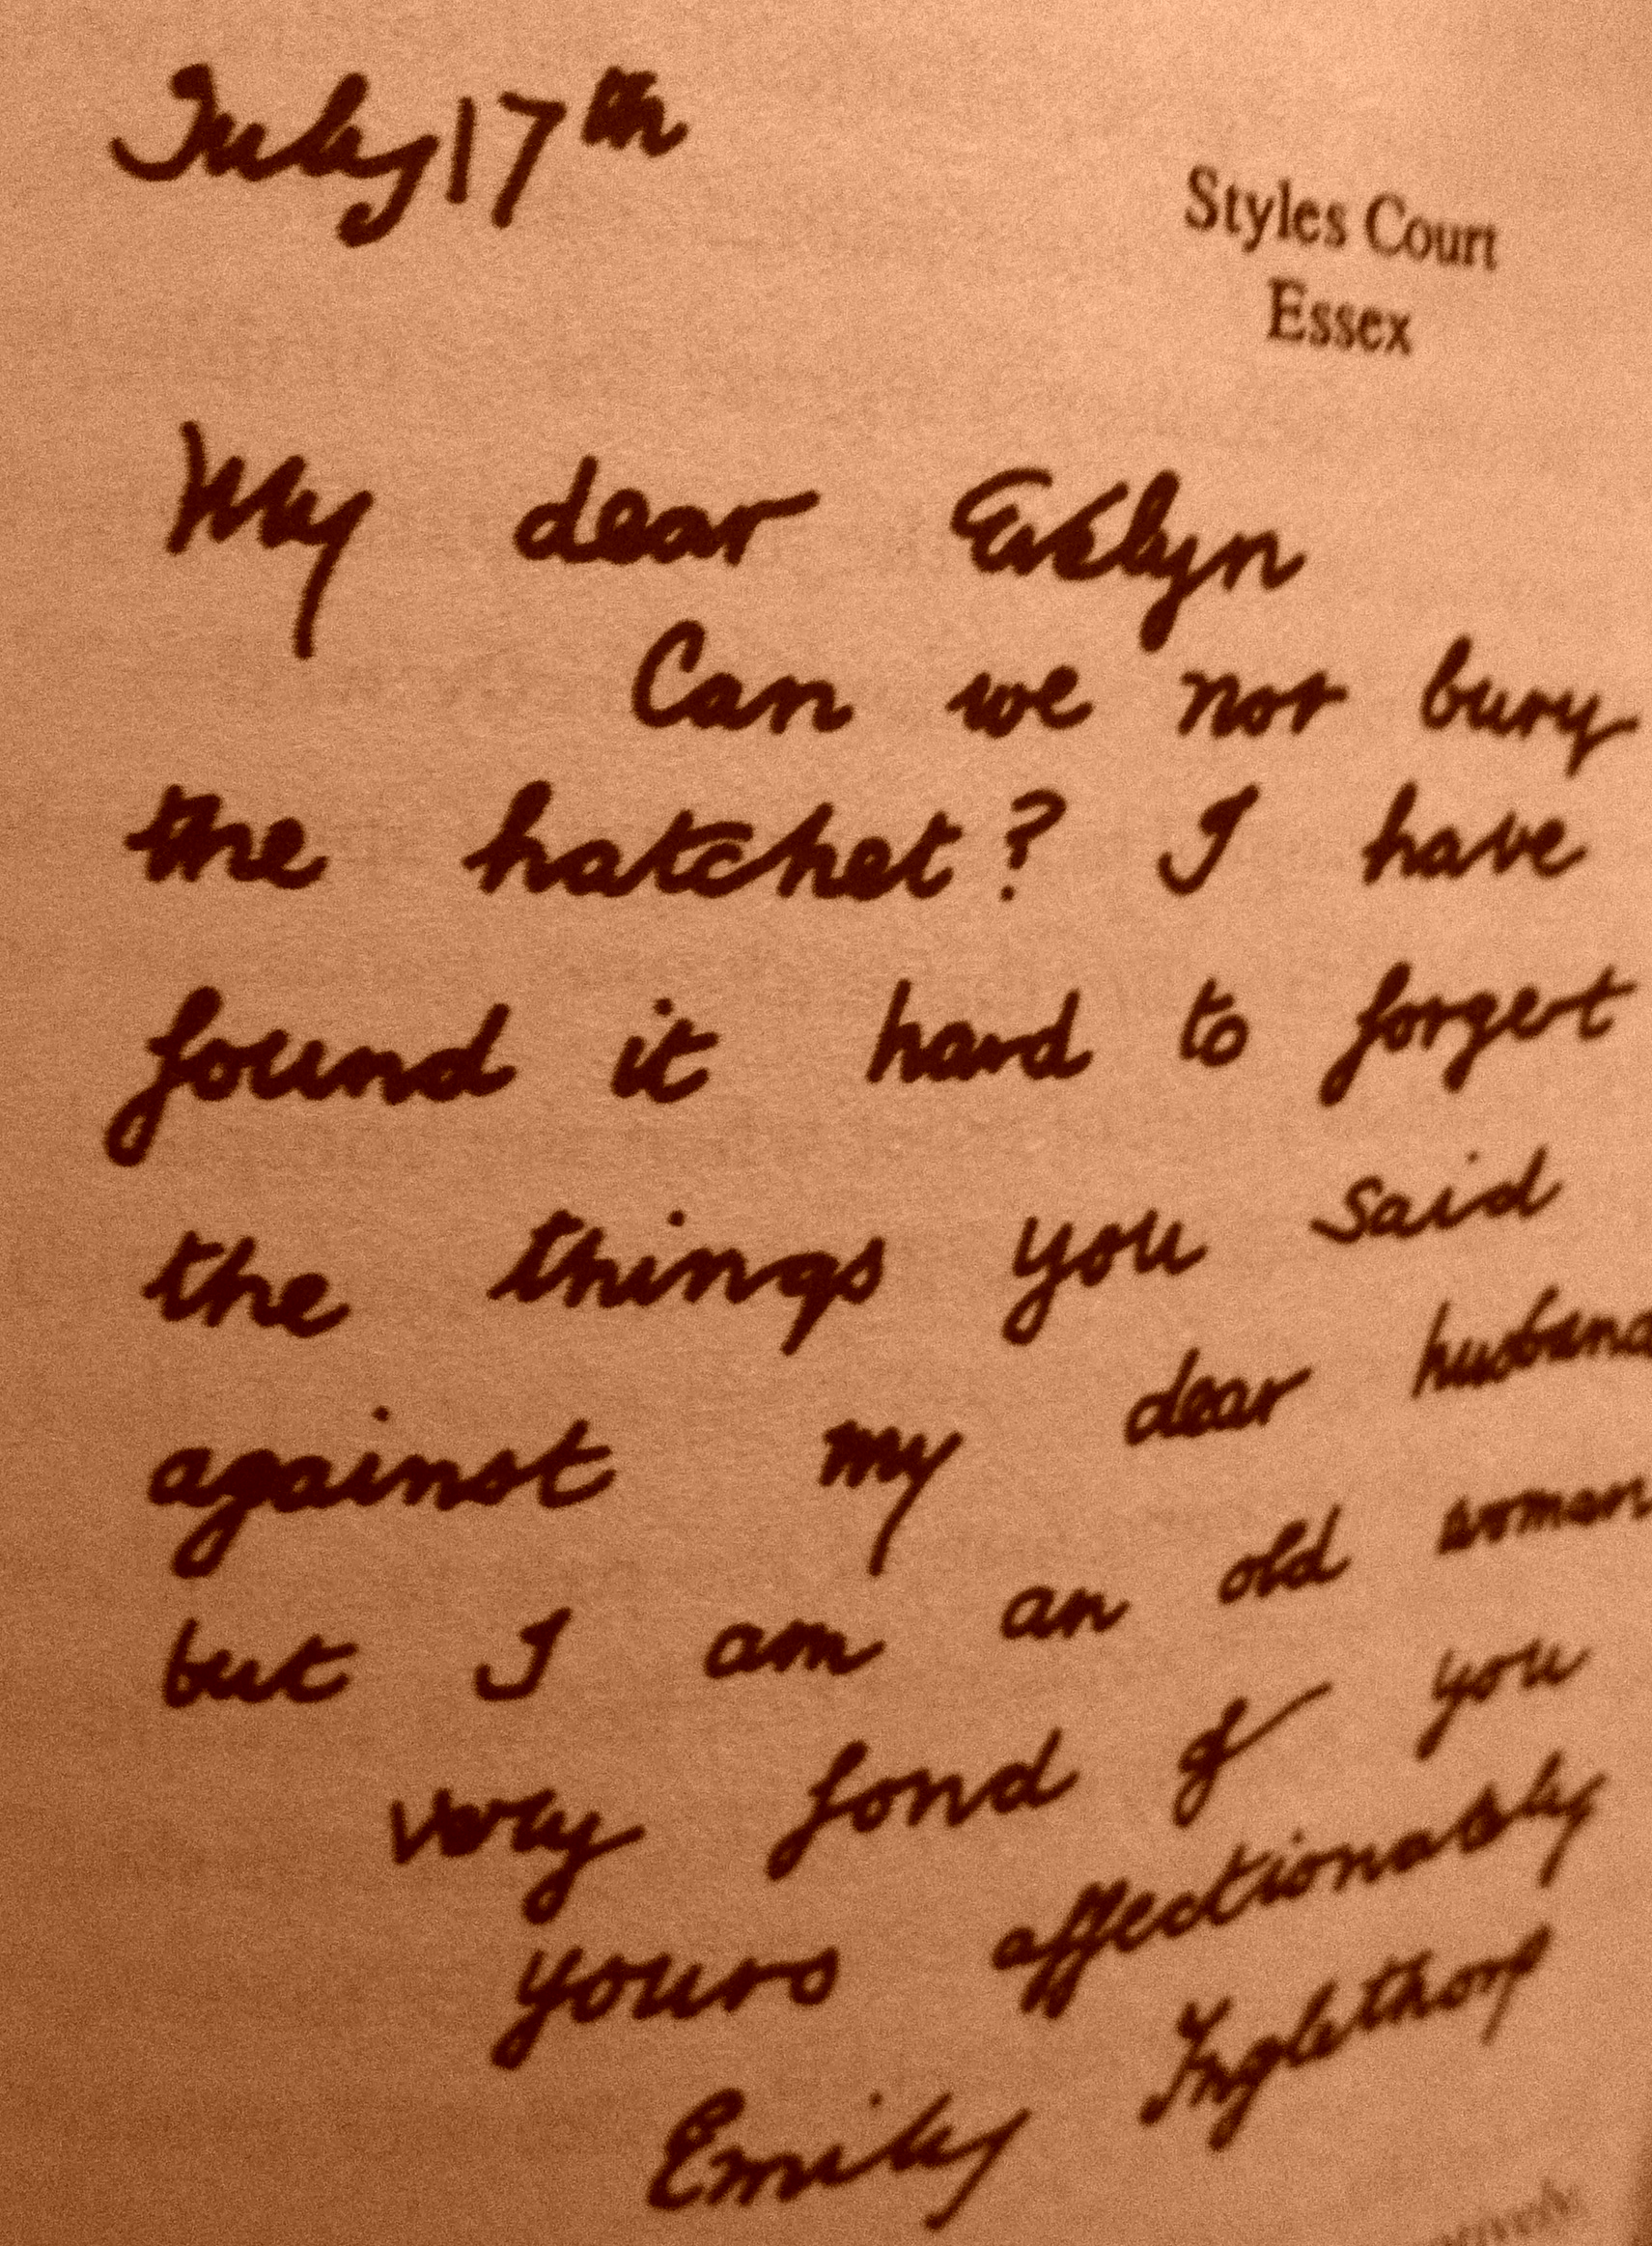 July 17th
Styles Court
Essex
My dear Evelyn
Can we not bury
the hatchet? I have
found it hard to forget
the things you said
against my dear husband
but I am an old woman
very fond of you
yours affectionately
Emily Inglethorp